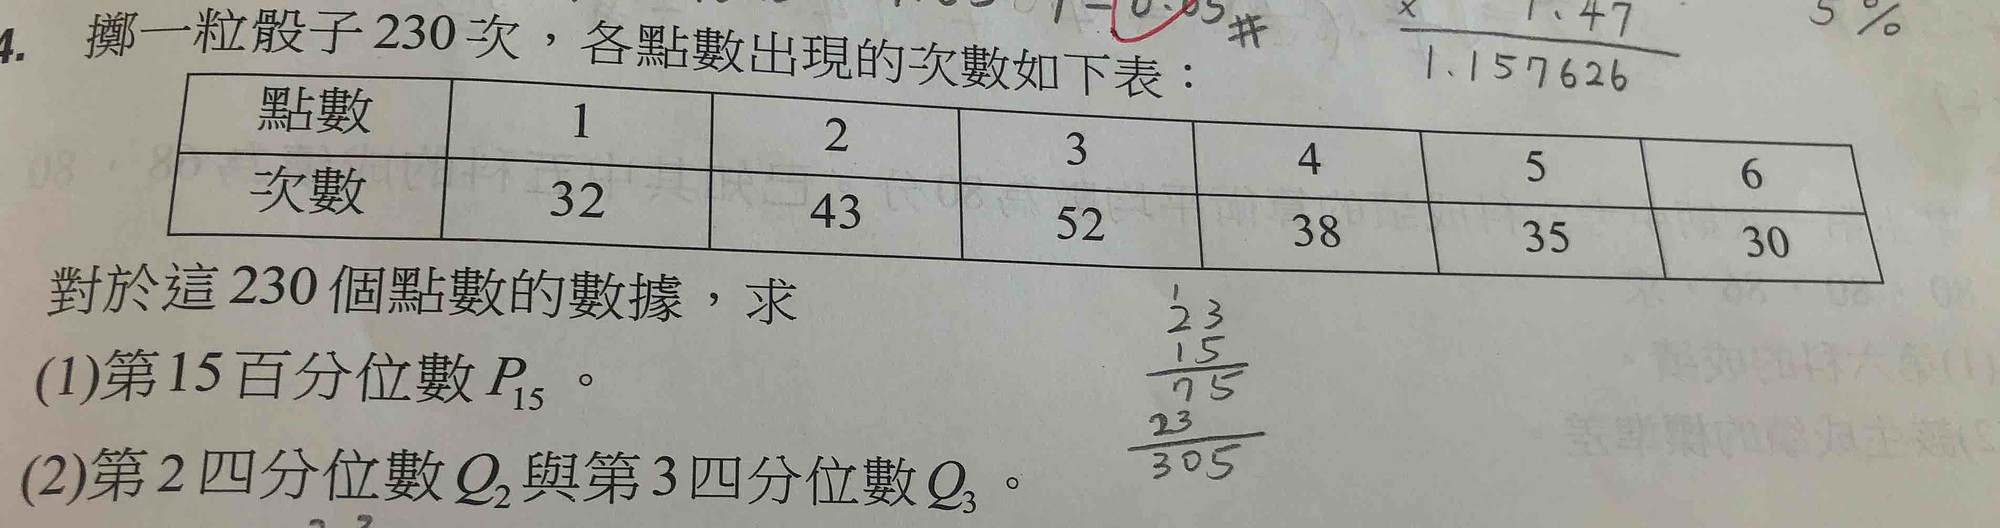 4. 擲一粒骰子230次，各點數出現的次數如下表：
0.05 #
× 1.47
1.157626
5%
點數 1 2 3 4 5 6
次數 32 43 52 38 35 30
對於這230個點數的數據，求
(1)第15百分位數P₁₅。
(2)第2四分位數Q₂與第3四分位數Q₃。
1
23
15
75
23
305